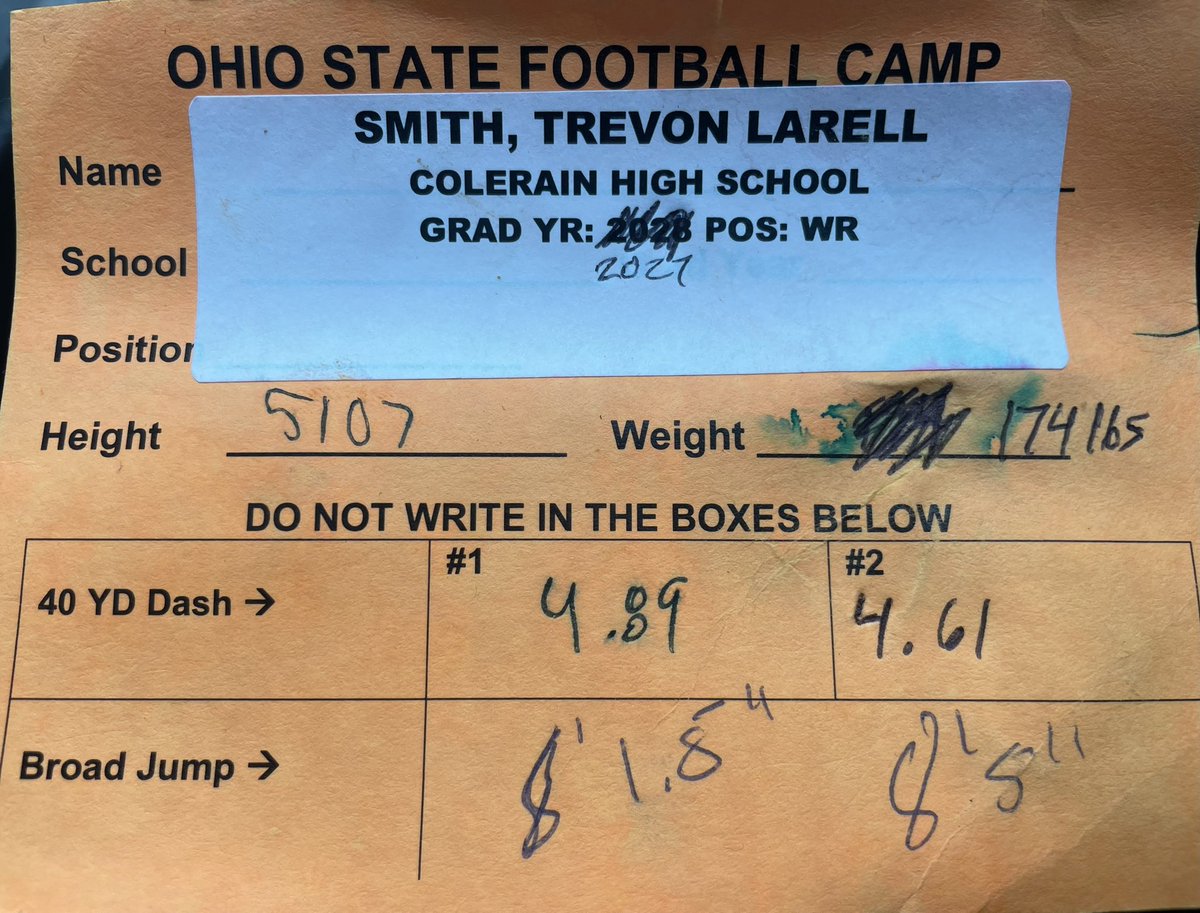 OHIO STATE FOOTBALL CAMP
SMITH, TREVON LARELL
Name
COLERAIN HIGH SCHOOL
GRAD YR: 2028 POS: WR
2027
School
Position
Height 5107 Weight 174 165
DO NOT WRITE IN THE BOXES BELOW
#1 #2
40 YD Dash → 4.89 4.61
Broad Jump → 8' 1.5" 8' 5"